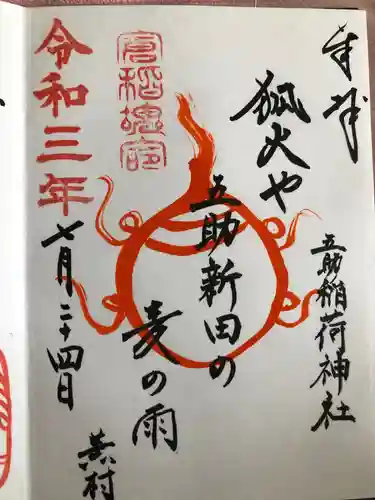 奉拝
五助稲荷神社
狐火や
五助新田の
麦の雨
蕪村
倉稲魂命
令和三年
七月二十四日